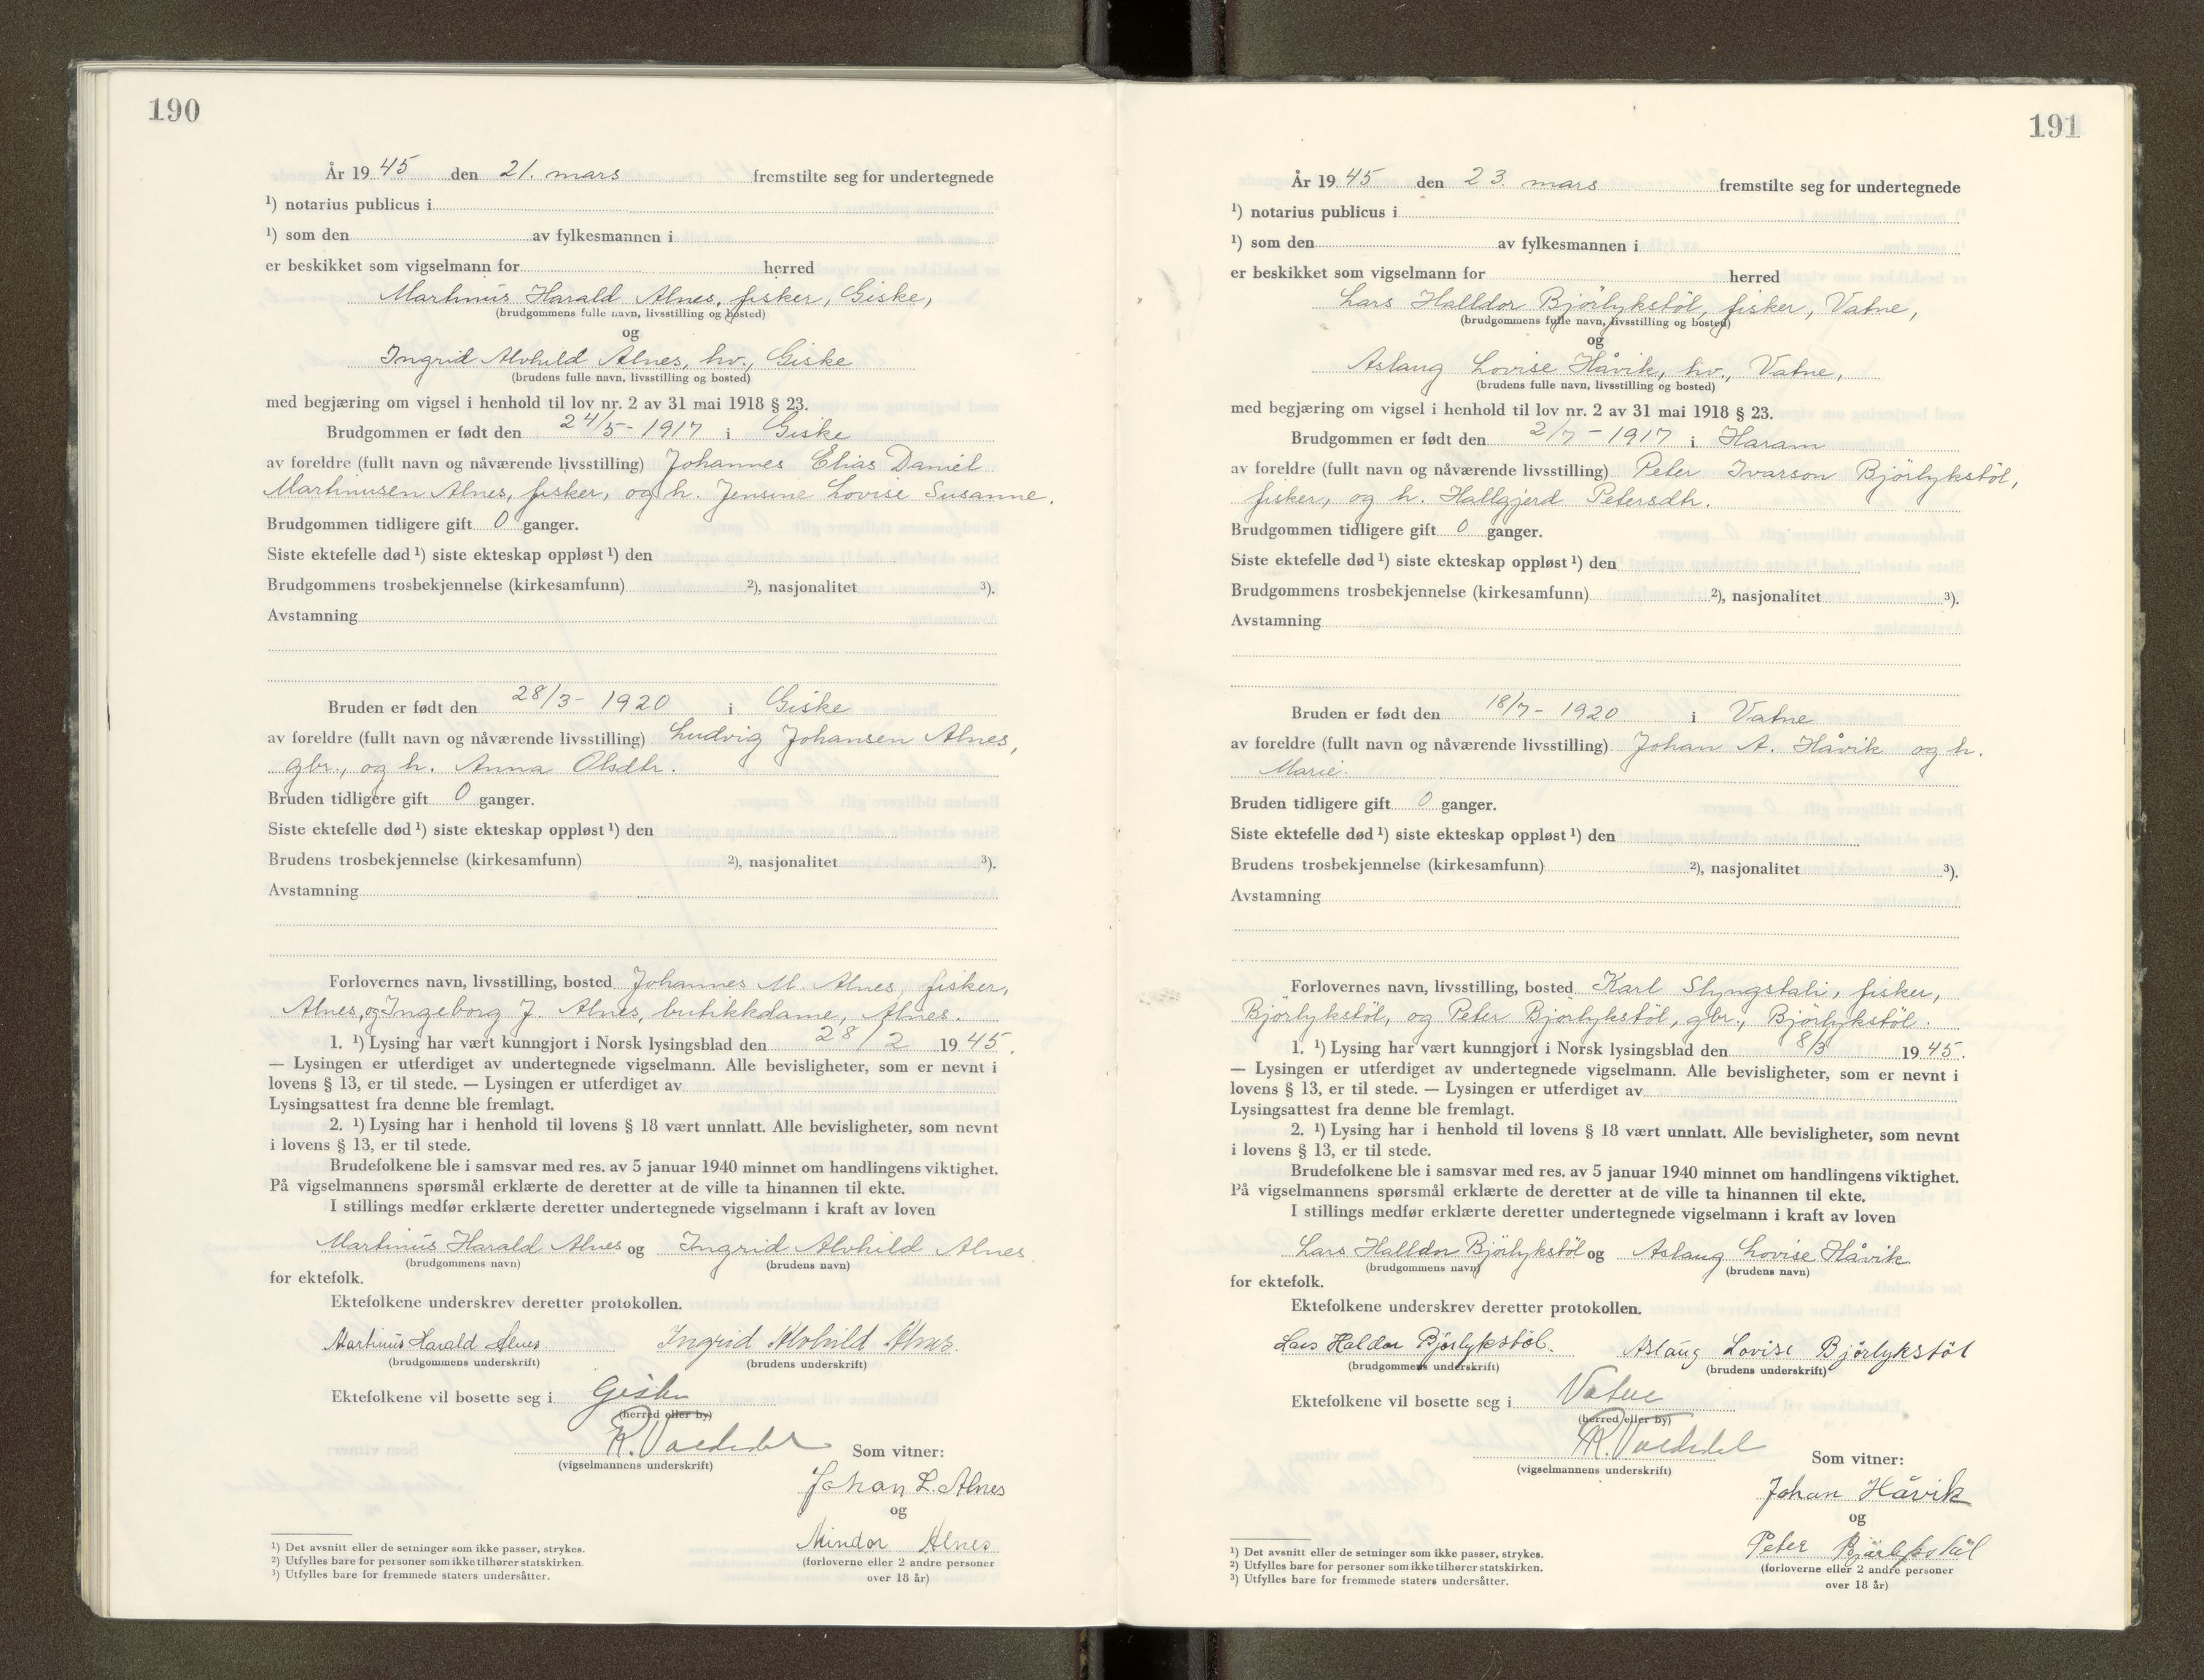 190
År 1945 den 21. mars fremstilte seg for undertegnede
¹) notarius publicus i
¹) som den av fylkesmannen i
er beskikket som vigselmann for herred
Martinus Harald Alnes, fisker, Giske,
(brudgommens fulle navn, livsstilling og bosted)
og
Ingrid Alvhild Alnes, hv., Giske
(brudens fulle navn, livsstilling og bosted)
med begjæring om vigsel i henhold til lov nr. 2 av 31 mai 1918 § 23.
Brudgommen er født den 24/5 - 1917 i Giske
av foreldre (fullt navn og nåværende livsstilling) Johannes Elias Daniel
Martinusen Alnes, fisker, og h. Jensine Lovise Susanne.
Brudgommen tidligere gift 0 ganger.
Siste ektefelle død ¹) siste ekteskap oppløst ¹) den
Brudgommens trosbekjennelse (kirkesamfunn) ²), nasjonalitet ³).
Avstamning
Bruden er født den 28/3 - 1920 i Giske
av foreldre (fullt navn og nåværende livsstilling) Ludvig Johansen Alnes,
gbr., og h. Anna Olsdtr.
Bruden tidligere gift 0 ganger.
Siste ektefelle død ¹) siste ekteskap oppløst ¹) den
Brudens trosbekjennelse (kirkesamfunn) ²), nasjonalitet ³).
Avstamning
Forlovernes navn, livsstilling, bosted Johannes M. Alnes, fisker,
Alnes, og Ingeborg J. Alnes, butikkdame, Alnes.
1. ¹) Lysing har vært kunngjort i Norsk lysingsblad den 28/2 1945.
— Lysingen er utferdiget av undertegnede vigselmann. Alle bevisligheter, som er nevnt i
lovens § 13, er til stede. — Lysingen er utferdiget av
Lysingsattest fra denne ble fremlagt.
2. ¹) Lysing har i henhold til lovens § 18 vært unnlatt. Alle bevisligheter, som nevnt
i lovens § 13, er til stede.
Brudefolkene ble i samsvar med res. av 5 januar 1940 minnet om handlingens viktighet.
På vigselmannens spørsmål erklærte de deretter at de ville ta hinannen til ekte.
I stillings medfør erklærte deretter undertegnede vigselmann i kraft av loven
Martinus Harald Alnes og Ingrid Alvhild Alnes
(brudgommens navn) (brudens navn)
for ektefolk.
Ektefolkene underskrev deretter protokollen.
Martinus Harald Alnes. Ingrid Alvhild Alnes.
(brudgommens underskrift) (brudens underskrift)
Ektefolkene vil bosette seg i Giske
(herred eller by)
Som vitner:
(vigselmannens underskrift)
Johan L. Alnes
og
Mindor Alnes
(forloverne eller 2 andre personer
over 18 år)
¹) Det avsnitt eller de setninger som ikke passer, strykes.
²) Utfylles bare for personer som ikke tilhører statskirken.
³) Utfylles bare for fremmede staters undersåtter.
191
År 1945 den 23. mars fremstilte seg for undertegnede
¹) notarius publicus i
¹) som den av fylkesmannen i
er beskikket som vigselmann for herred
Lars Halldor Björlykstöl, fisker, Vatne,
(brudgommens fulle navn, livsstilling og bosted)
og
Aslaug Lovise Håvik, hv., Vatne,
(brudens fulle navn, livsstilling og bosted)
med begjæring om vigsel i henhold til lov nr. 2 av 31 mai 1918 § 23.
Brudgommen er født den 2/7 - 1917 i Haram
av foreldre (fullt navn og nåværende livsstilling) Peter Ivarson Björlykstöl,
fisker, og h. Hallgjerd Petersdtr.
Brudgommen tidligere gift 0 ganger.
Siste ektefelle død ¹) siste ekteskap oppløst ¹) den
Brudgommens trosbekjennelse (kirkesamfunn) ²), nasjonalitet ³).
Avstamning
Bruden er født den 18/7 - 1920 i Vatne
av foreldre (fullt navn og nåværende livsstilling) Johan A. Håvik og h.
Marie.
Bruden tidligere gift 0 ganger.
Siste ektefelle død ¹) siste ekteskap oppløst ¹) den
Brudens trosbekjennelse (kirkesamfunn) ²), nasjonalitet ³).
Avstamning
Forlovernes navn, livsstilling, bosted Karl Slyngstali, fisker,
Björlykstöl, og Peter Björlykstöl, gbr., Björlykstöl.
1. ¹) Lysing har vært kunngjort i Norsk lysingsblad den 8/3 1945.
— Lysingen er utferdiget av undertegnede vigselmann. Alle bevisligheter, som er nevnt i
lovens § 13, er til stede. — Lysingen er utferdiget av
Lysingsattest fra denne ble fremlagt.
2. ¹) Lysing har i henhold til lovens § 18 vært unnlatt. Alle bevisligheter, som nevnt
i lovens § 13, er til stede.
Brudefolkene ble i samsvar med res. av 5 januar 1940 minnet om handlingens viktighet.
På vigselmannens spørsmål erklærte de deretter at de ville ta hinannen til ekte.
I stillings medfør erklærte deretter undertegnede vigselmann i kraft av loven
Lars Halldor Björlykstöl og Aslaug Lovise Håvik
(brudgommens navn) (brudens navn)
for ektefolk.
Ektefolkene underskrev deretter protokollen.
Lars Haldor Björlykstöl. Aslaug Lovise Björlykstöl
(brudgommens underskrift) (brudens underskrift)
Ektefolkene vil bosette seg i Vatne
(herred eller by)
Som vitner:
(vigselmannens underskrift)
Johan Håvik
og
Peter Björlykstöl
(forloverne eller 2 andre personer
over 18 år)
¹) Det avsnitt eller de setninger som ikke passer, strykes.
²) Utfylles bare for personer som ikke tilhører statskirken.
³) Utfylles bare for fremmede staters undersåtter.